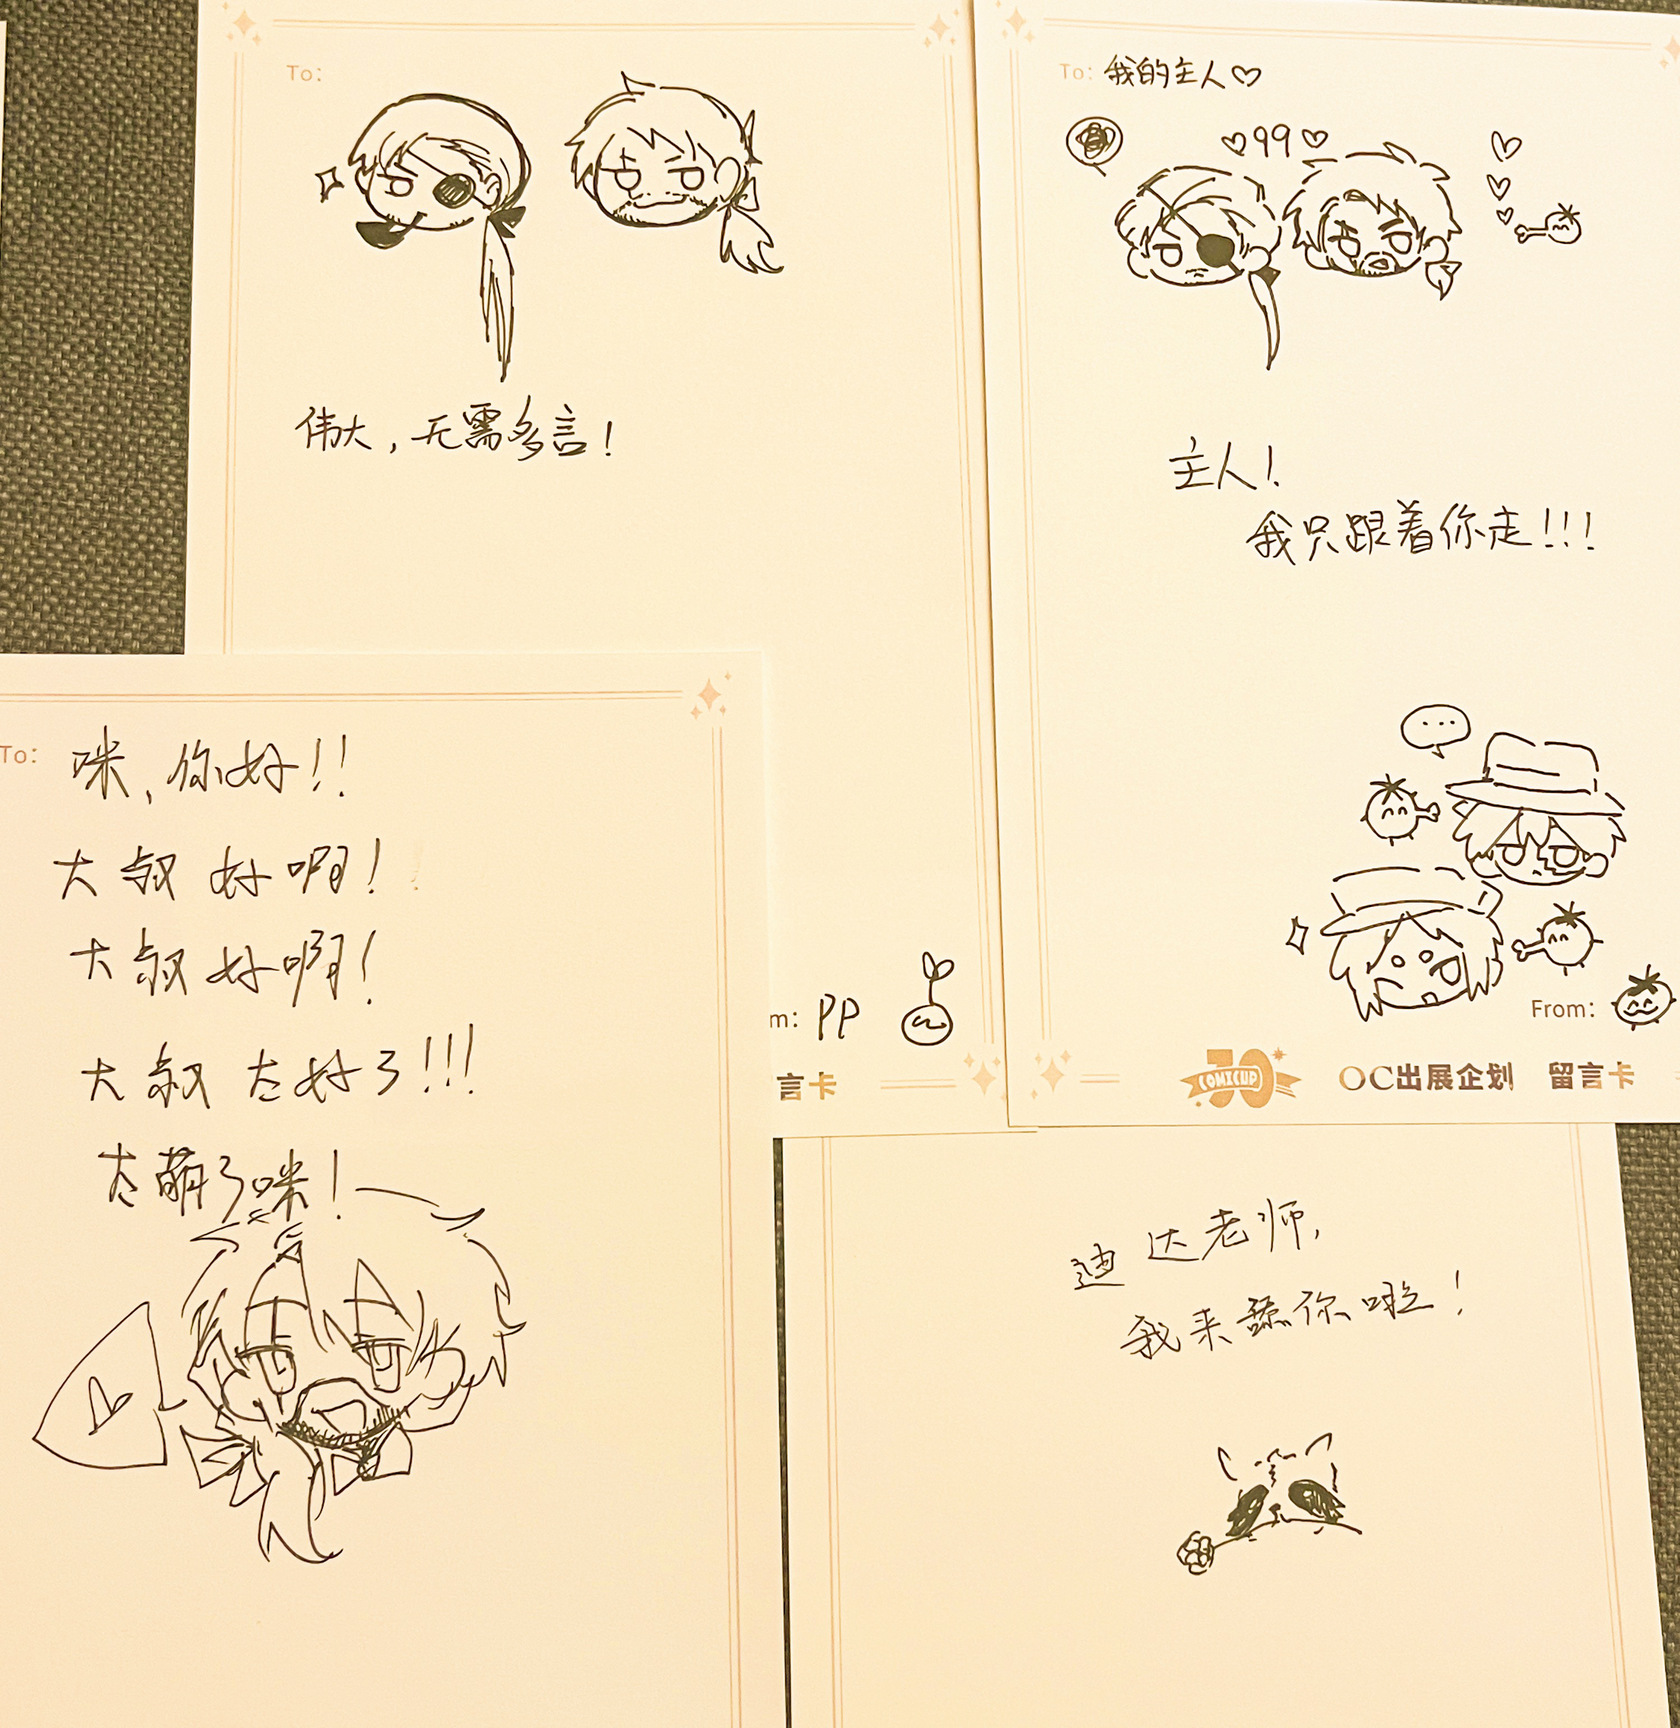 To:
伟大，无需多言！
m: PP
言卡
To: 我的主人♡
♡99♡
主人！
我只跟着你走！！！
...
From:
COMICUP 30 OC出展企划 留言卡
To: 咪，你好！！
大叔好啊！
大叔好啊！
大叔太好了！！！
太萌了咪！
迪达老师，
我来舔你啦！